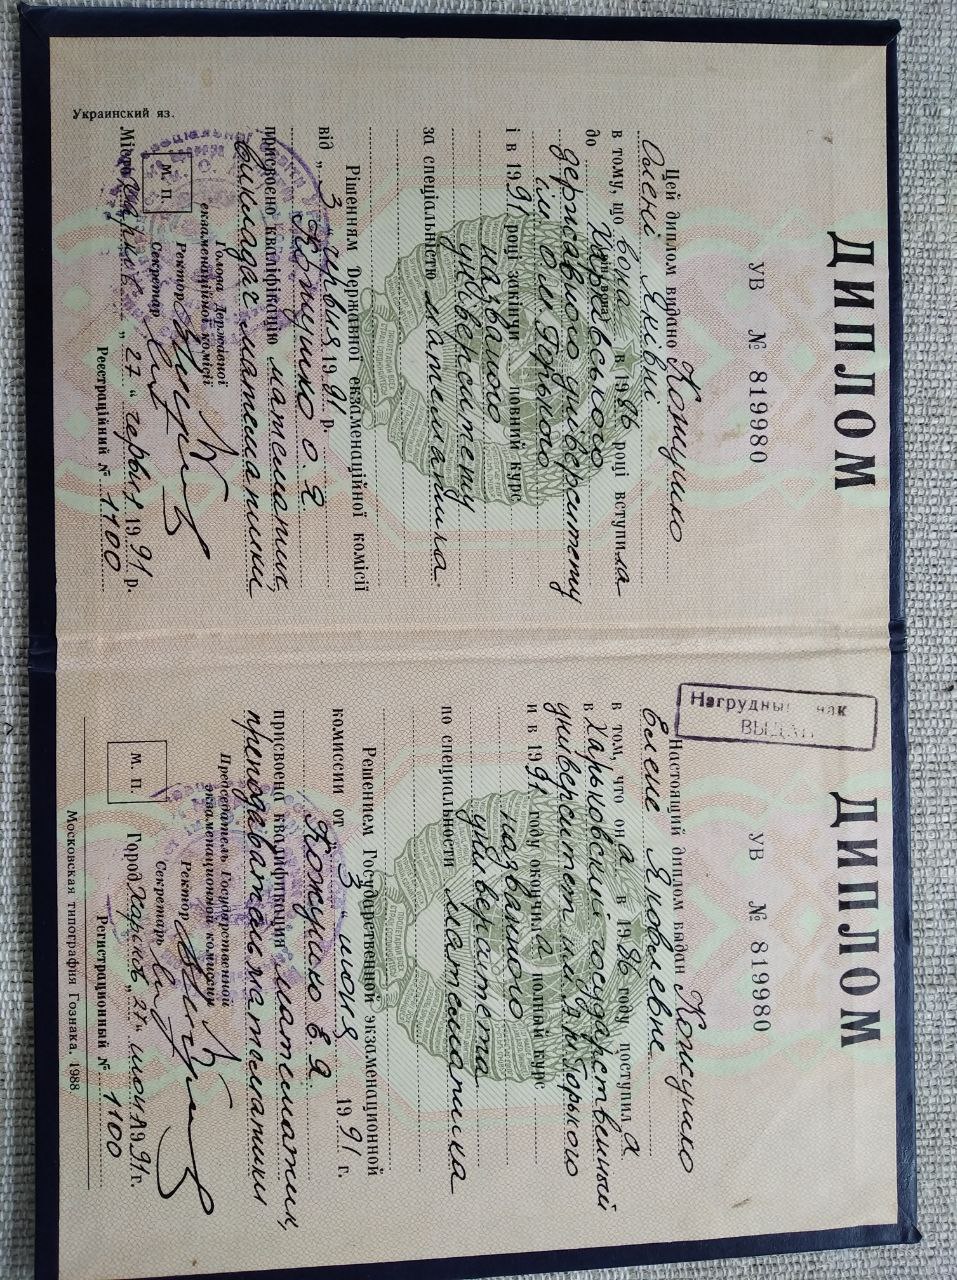 ДИПЛОМ
УВ № 819980
Цей диплом видано Кожушко
Олені Яківні
в тому, що вона в 1986 році вступила
до Харківського
державного університету
ім. О.М. Горького
і в 1991 році закінчила повний курс
названого
університету
за спеціальністю математика.
Рішенням Державної екзаменаційної комісії
від „3 червня 1991 р.
Кожушко О.Я.
присвоєно кваліфікацію математик,
викладач математики
Голова Державної
екзаменаційної комісії
М. П.
Ректор
Секретар
Місто Харків „27“ червня 1991 р.
Реєстраційний № 1100
Украинский яз.
Нагрудный знак
ВЫДАН
ДИПЛОМ
УВ № 819980
Настоящий диплом выдан Кожушко
Елене Яковлевне
в том, что она в 1986 году поступила
в Харьковский государственный
университет им. А.М. Горького
и в 1991 году окончила полный курс
названного
университета
по специальности математика
Решением Государственной экзаменационной
комиссии от „3“ июня 1991 г.
Кожушко Е.Я.
присвоена квалификация математик,
преподаватель математики
Председатель Государственной
экзаменационной комиссии
М. П.
Ректор
Секретарь
Город Харьков „27“ июня 1991 г.
Регистрационный № 1100
Московская типография Гознака. 1988.